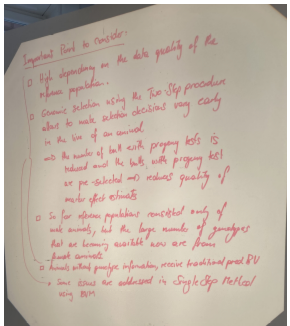 Important Point to consider.
□ High dependency on the data quality of the
reference population.
□ Genomic selection using the Two-Step procedure
allows to make selection decisions very early
in the live of an animal
⇒ the number of bulls with progeny tests is
reduced and the bulls with progeny test
are pre-selected ⇒ reduces quality of
marker effect estimates
□ So far reference populations consisted only of
male animals, but the large number of genotypes
that are becoming available now are from
female animals
□ Animals without genotype information, receive traditional pred. BV
• Some issues are addressed in Single Step Method
using